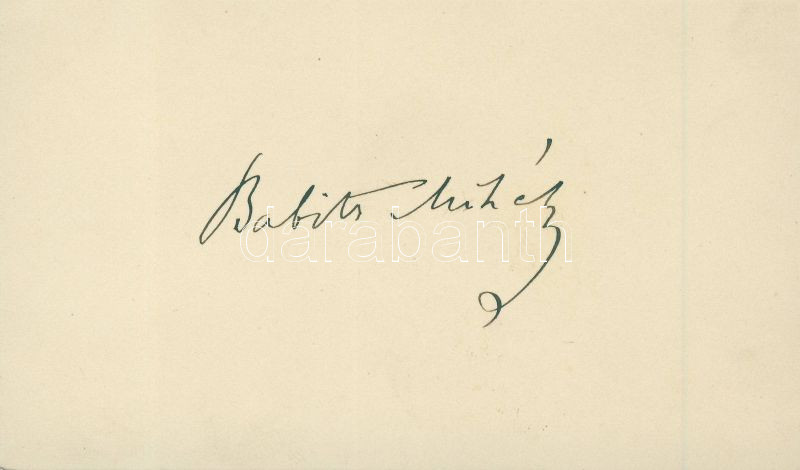 Babits Mihály
darabanth